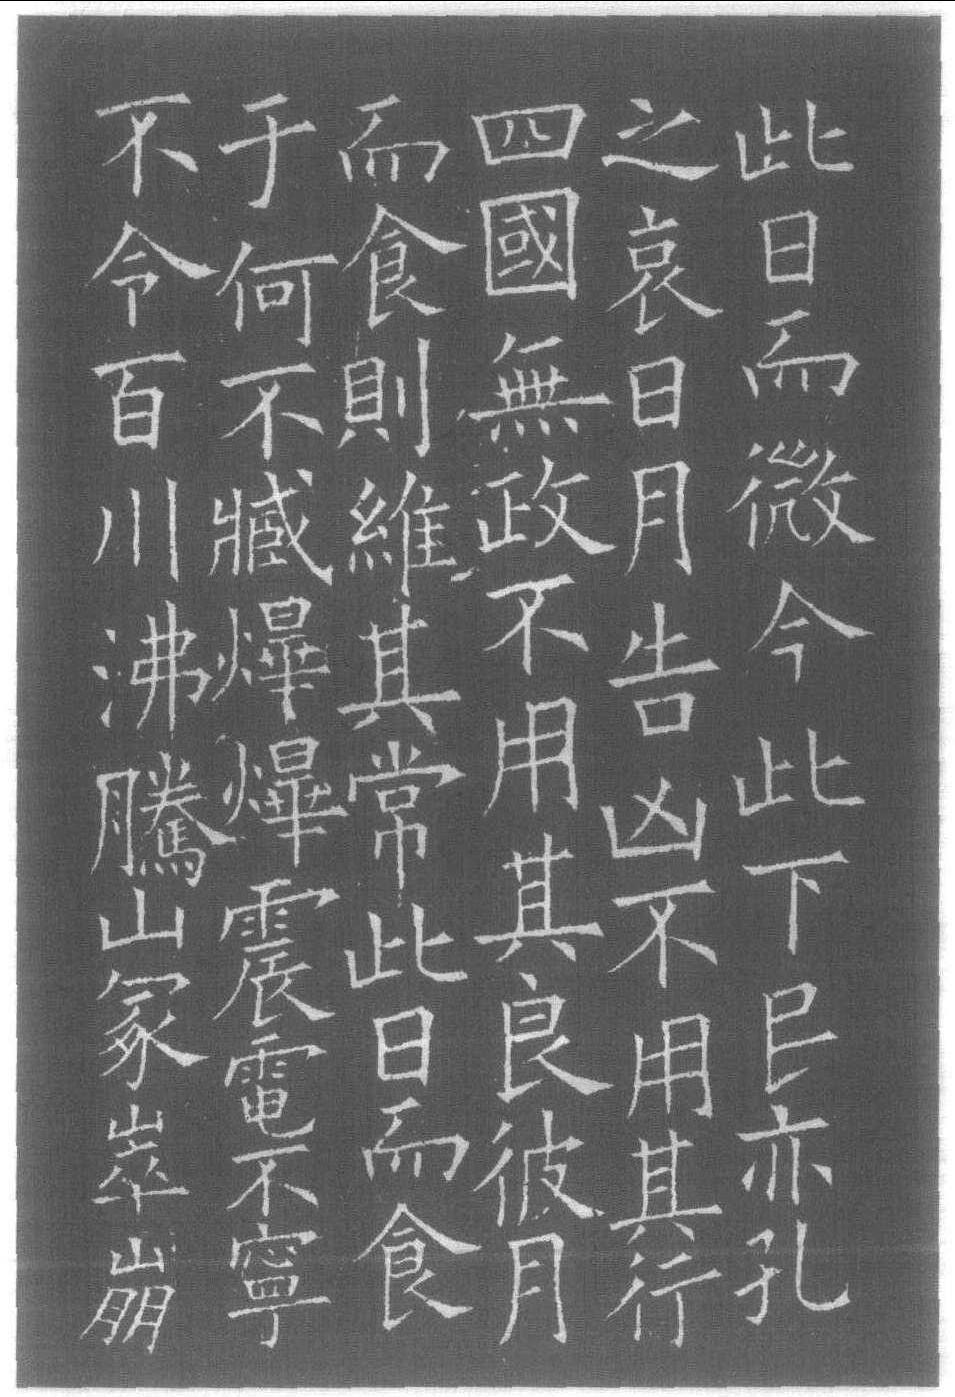 此日而微今此下民亦孔
之哀日月告凶不用其行
四國無政不用其良彼月
而食則維其常此日而食
于何不臧爗爗震電不寧
不令百川沸騰山冢崒崩